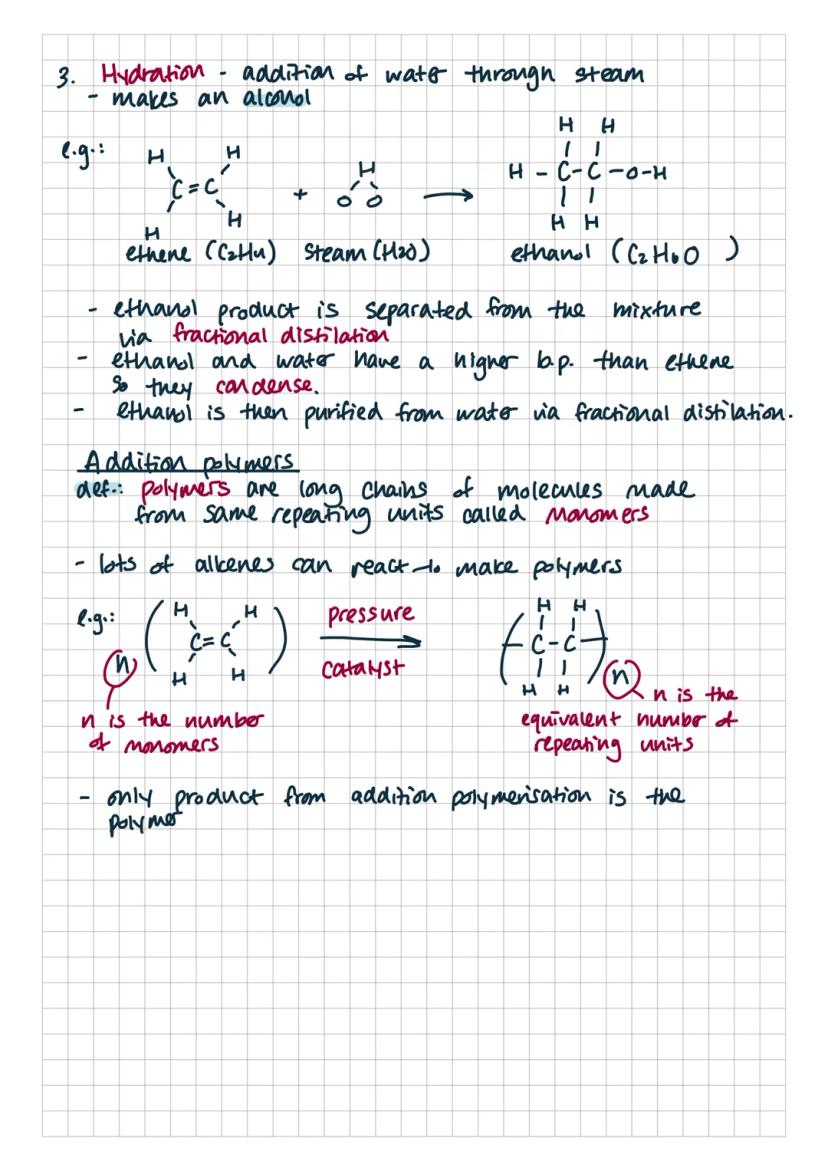 3. Hydration - addition of water through steam
- makes an alcohol
e.g.:
H H
C=C
H H
+
H
O O
→
H H
H - C - C - O - H
H H
ethene (C2H4) steam (H2O) ethanol (C2H6O )
- ethanol product is separated from the mixture
via fractional distilation
- ethanol and water have a higher b.p. than ethene
so they condense.
- ethanol is then purified from water via fractional distilation.
Addition polymers
def.: polymers are long chains of molecules made
from same repeating units called monomers
- lots of alkenes can react to make polymers
e.g.:
n
H H
C=C
H H
pressure
catalyst
H H
C-C
H H
n
n is the number
of monomers
n is the
equivalent number of
repeating units
- only product from addition polymerisation is the
polymer